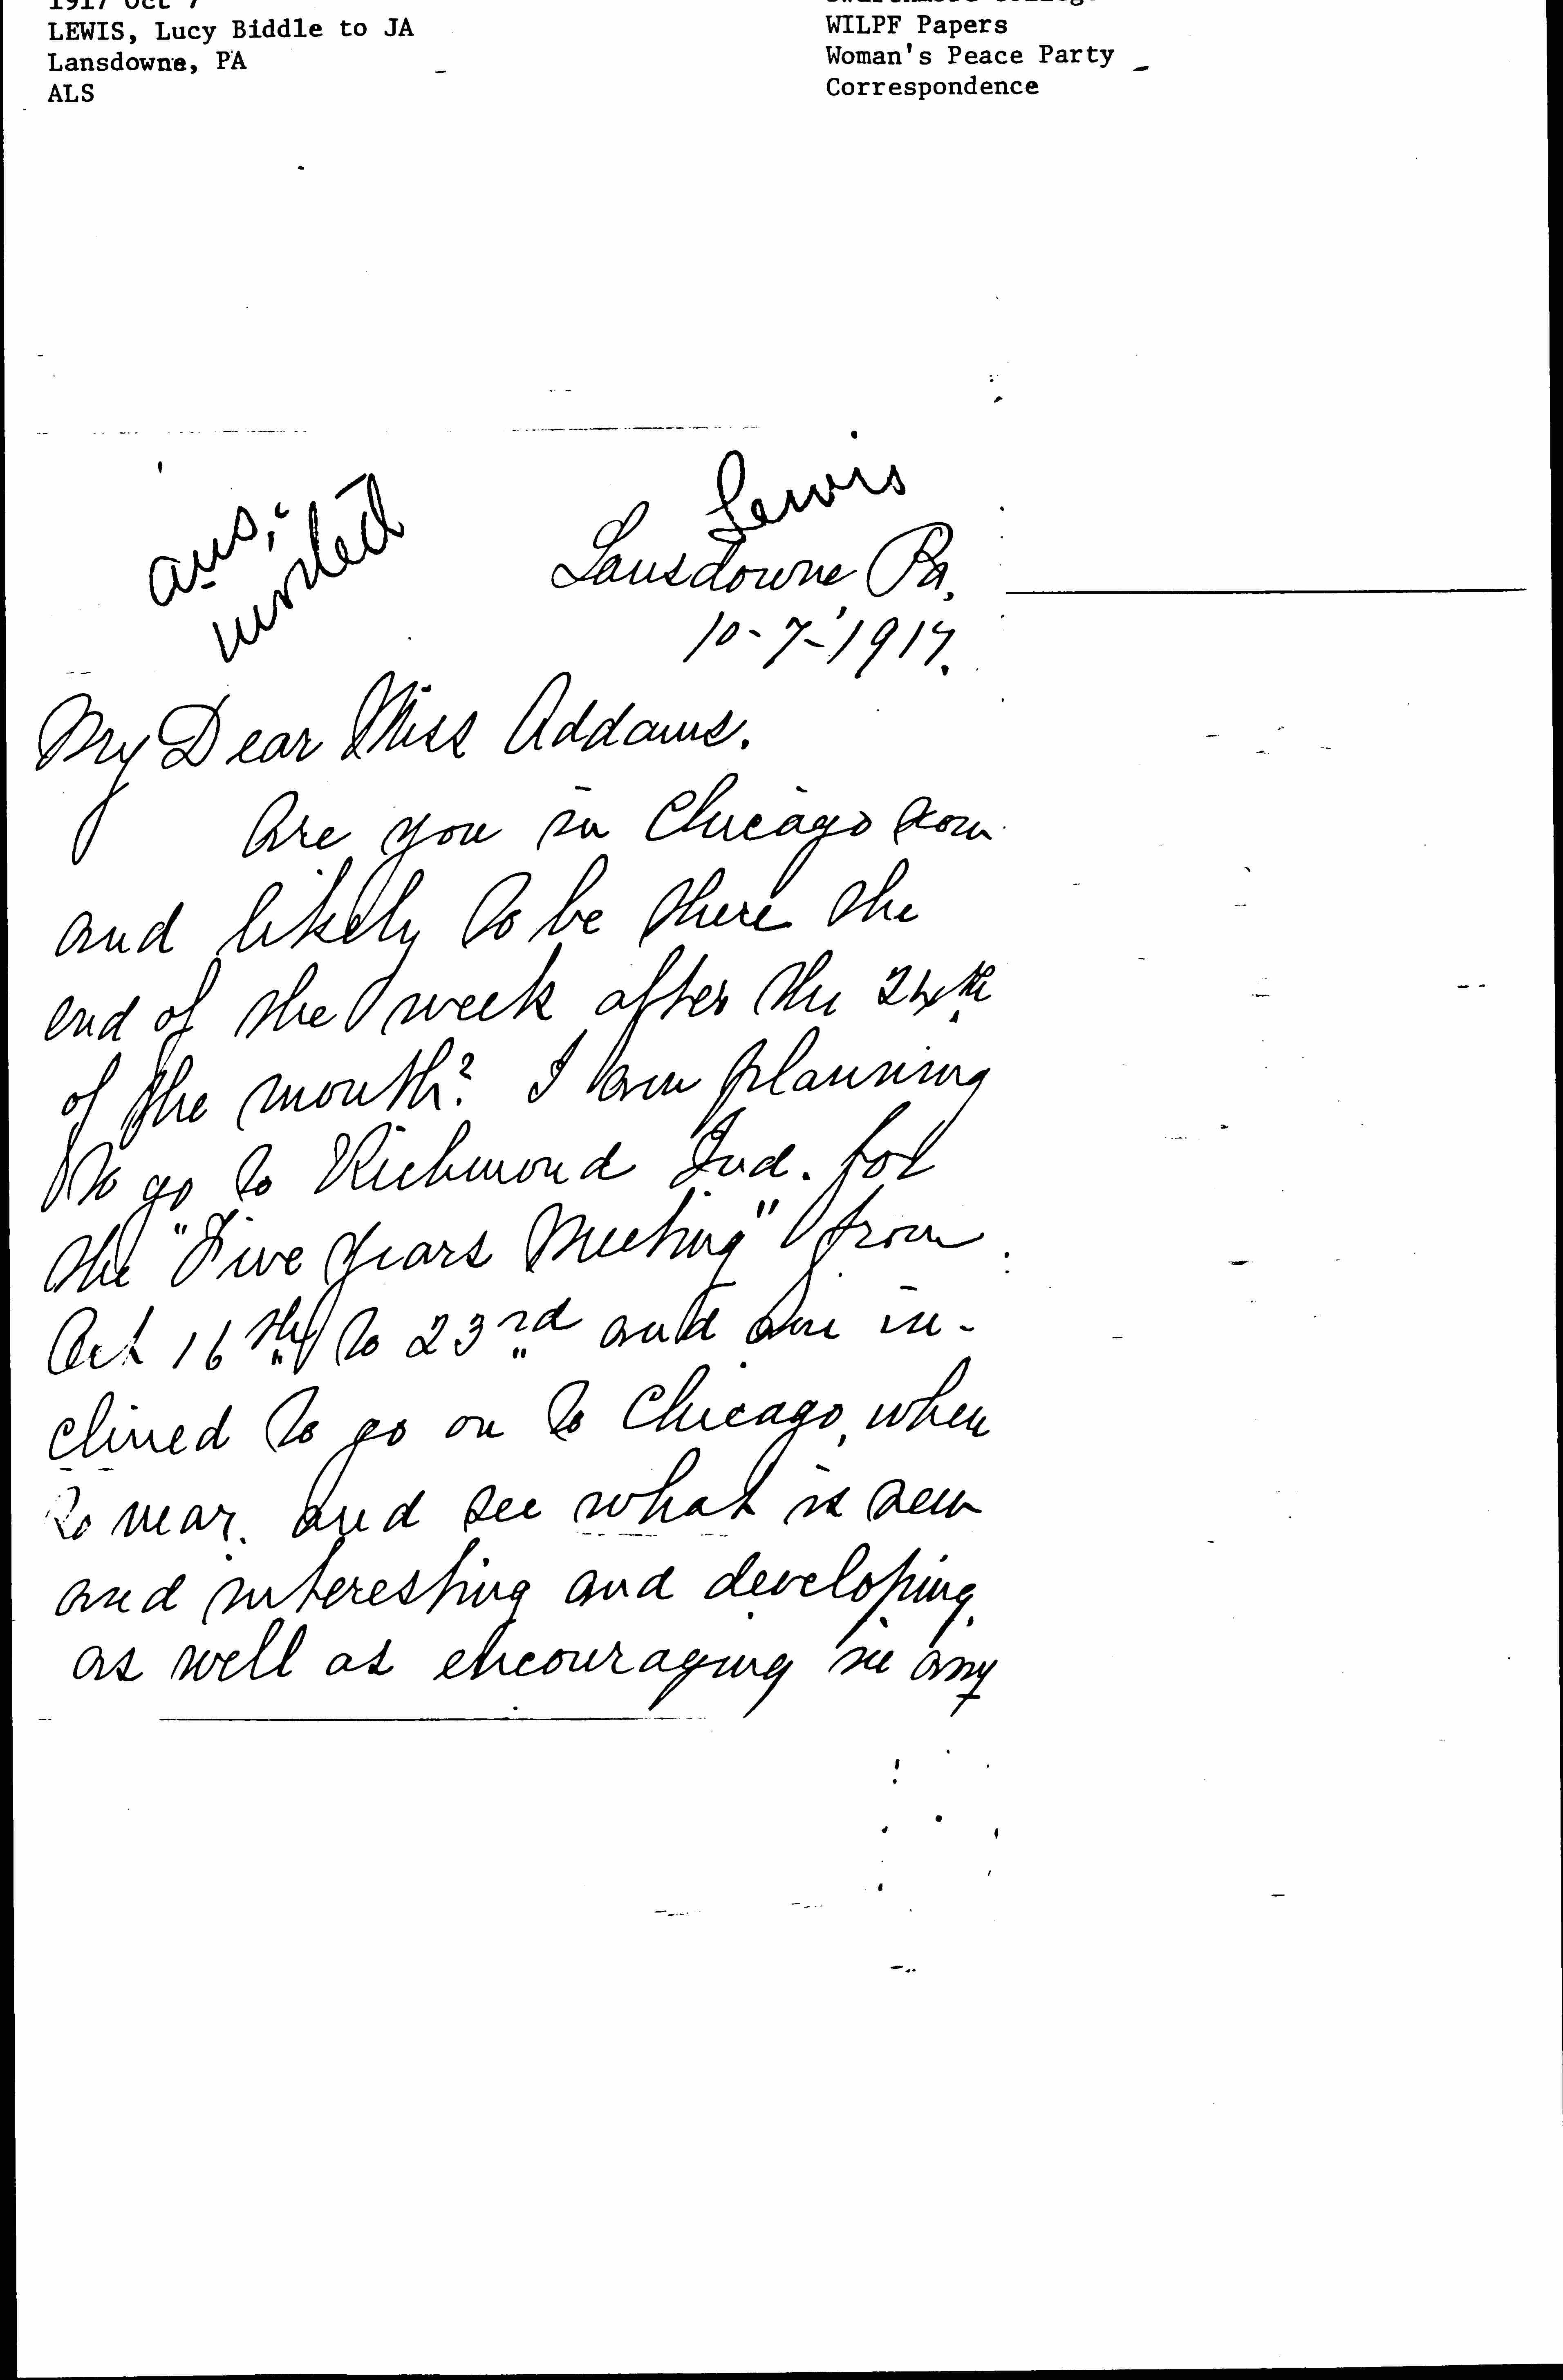 1917 Oct 7
LEWIS, Lucy Biddle to JA
Lansdowne, PA
ALS
Swarthmore College
WILPF Papers
Woman's Peace Party
Correspondence
Lewis
ans,-
invited
Lansdowne Pa.
10-7-'1917.
My Dear Miss Addams.
Are you in Chicago now
and likely to be there the
end of the week after the 24th
of the month? I am planning
to go to Richmond Ind. for
the "Five Years Meeting" from
Oct 16th to 23rd and am in-
clined to go on to Chicago, when
so near. and see what is new
and interesting and developing
as well as encouraging in any